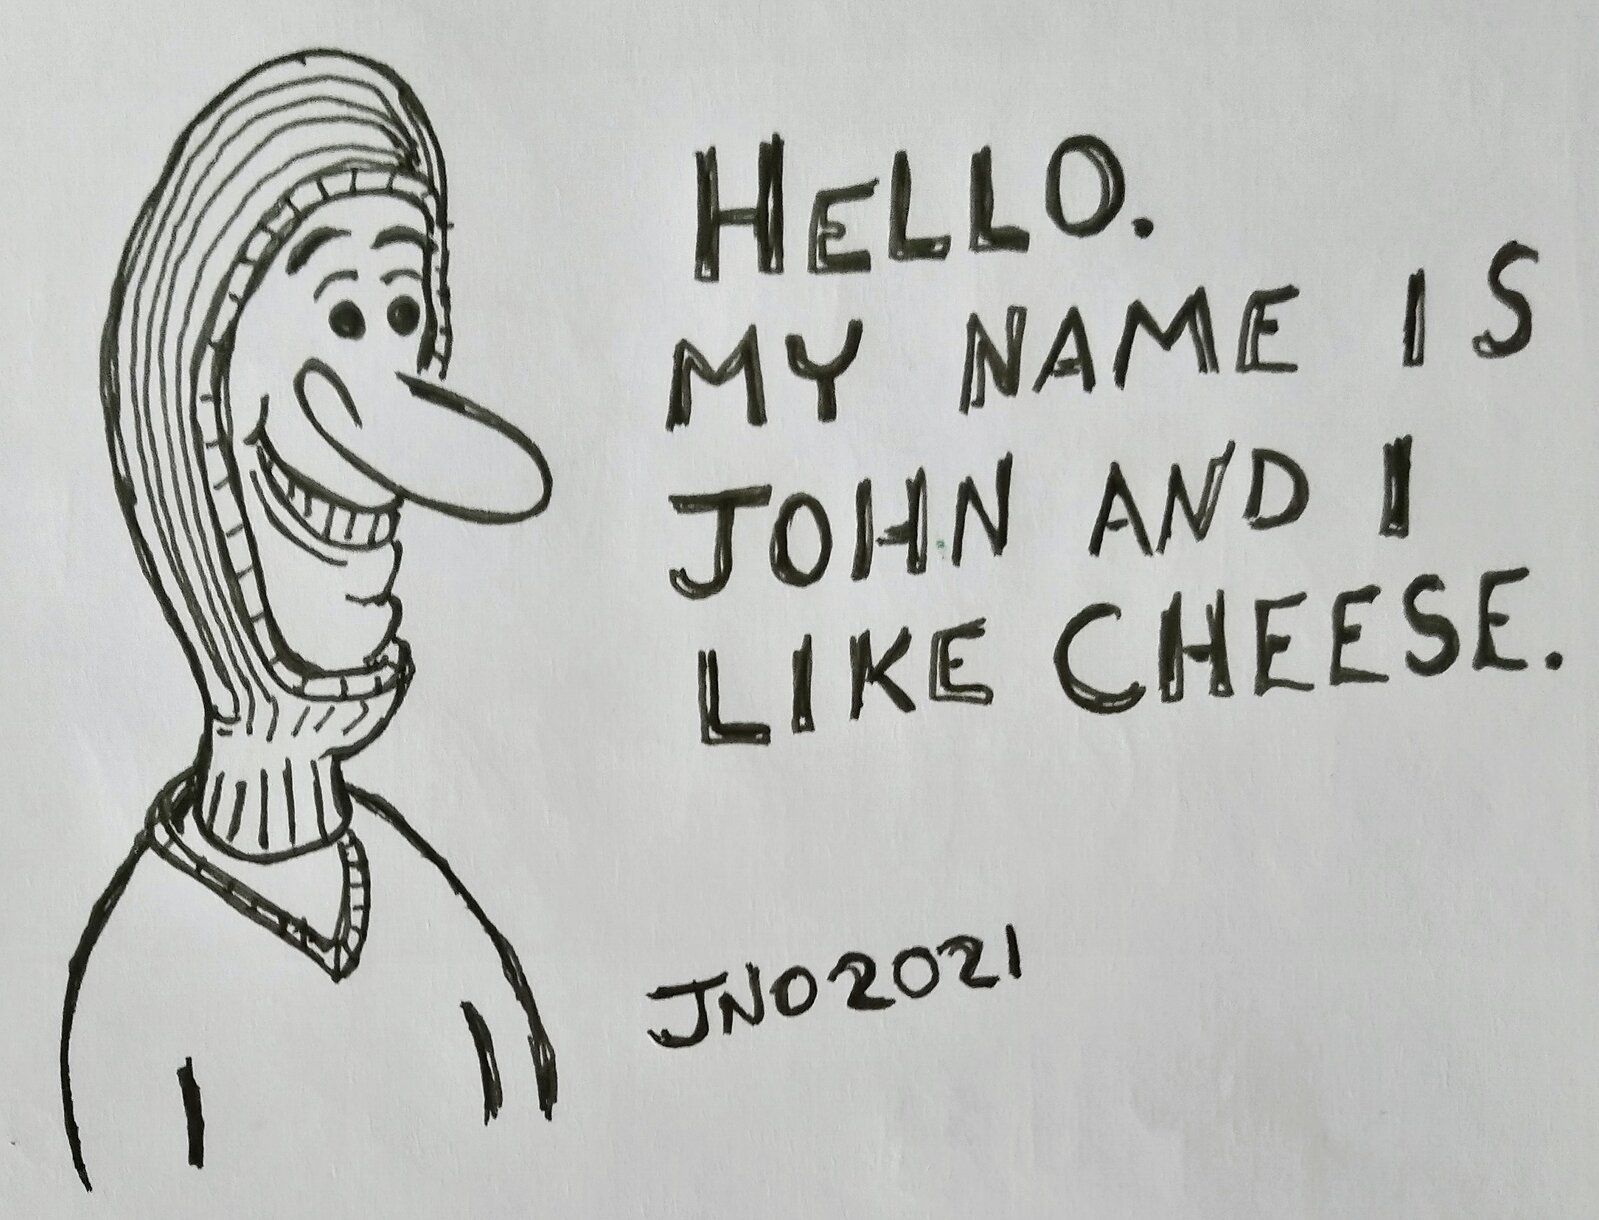 HELLO.
MY NAME IS
JOHN AND I
LIKE CHEESE.
JNO2021